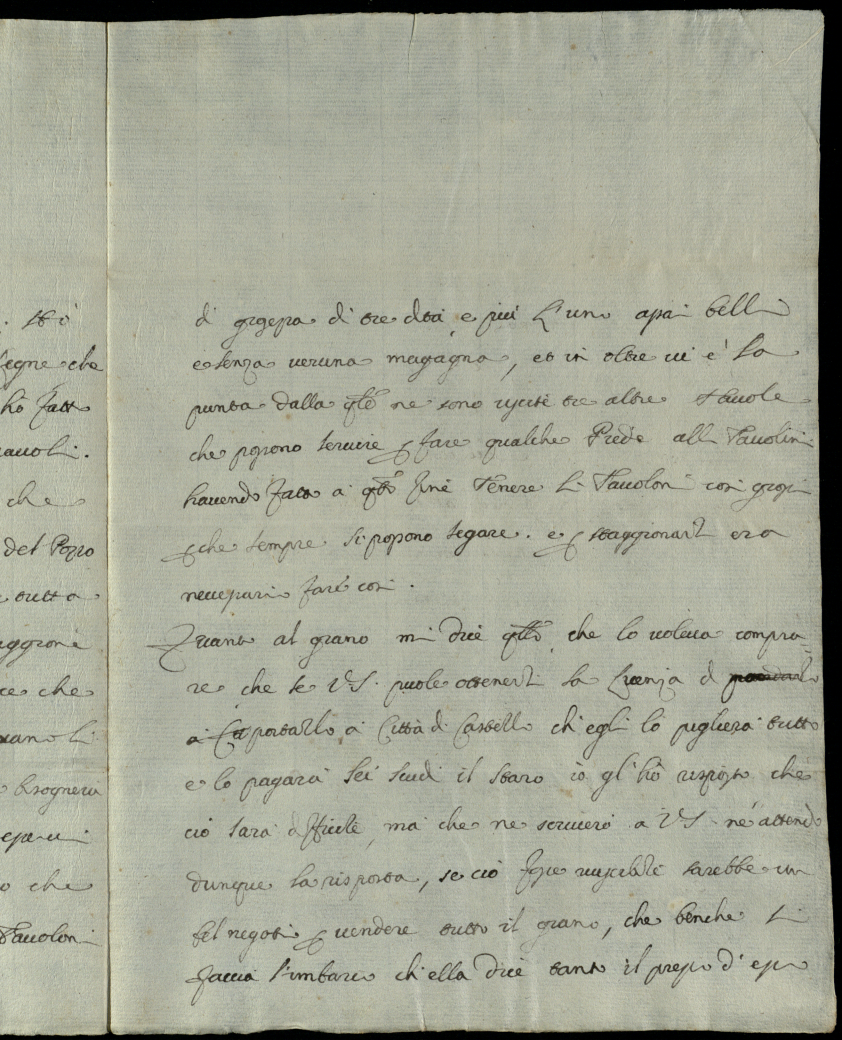 . Hò
legne che
hò fatto
tauoli.
che
del Pozzo
tutta
aggione
ce che
uano li
bisognera
esserui
o che
Tauoloni
di grossezza di tre dita, e più l'uno assai belli
e senza ueruna magagna, et in oltre ui è la
punta dalla qle ne sono uscite tre altre tauole
che possono seruire p fare qualche Prede alli Tauolini
hauendo fatto a qto fine tenere li Tauoloni così grossi
pche sempre si possono segare. e p staggionarli era
necessario fare così.
Quanto al grano mi dice qllo, che lo uoleua compra-
re che se VS. puole ottenerli la licenza di
portarlo a Città di Castello ch'egli lo pigliera tutto
e lo pagarà sei scudi il staro io gl'hò risposto che
ciò sarà difficile, ma che ne scriuerò a VS ne attendo
dunque la risposta, se ciò fosse riuscibile sarebbe un
bel negotio p uendere tutto il grano, che benche si
faccia l'imbarco ch'ella dice tanto il prezzo d'esso